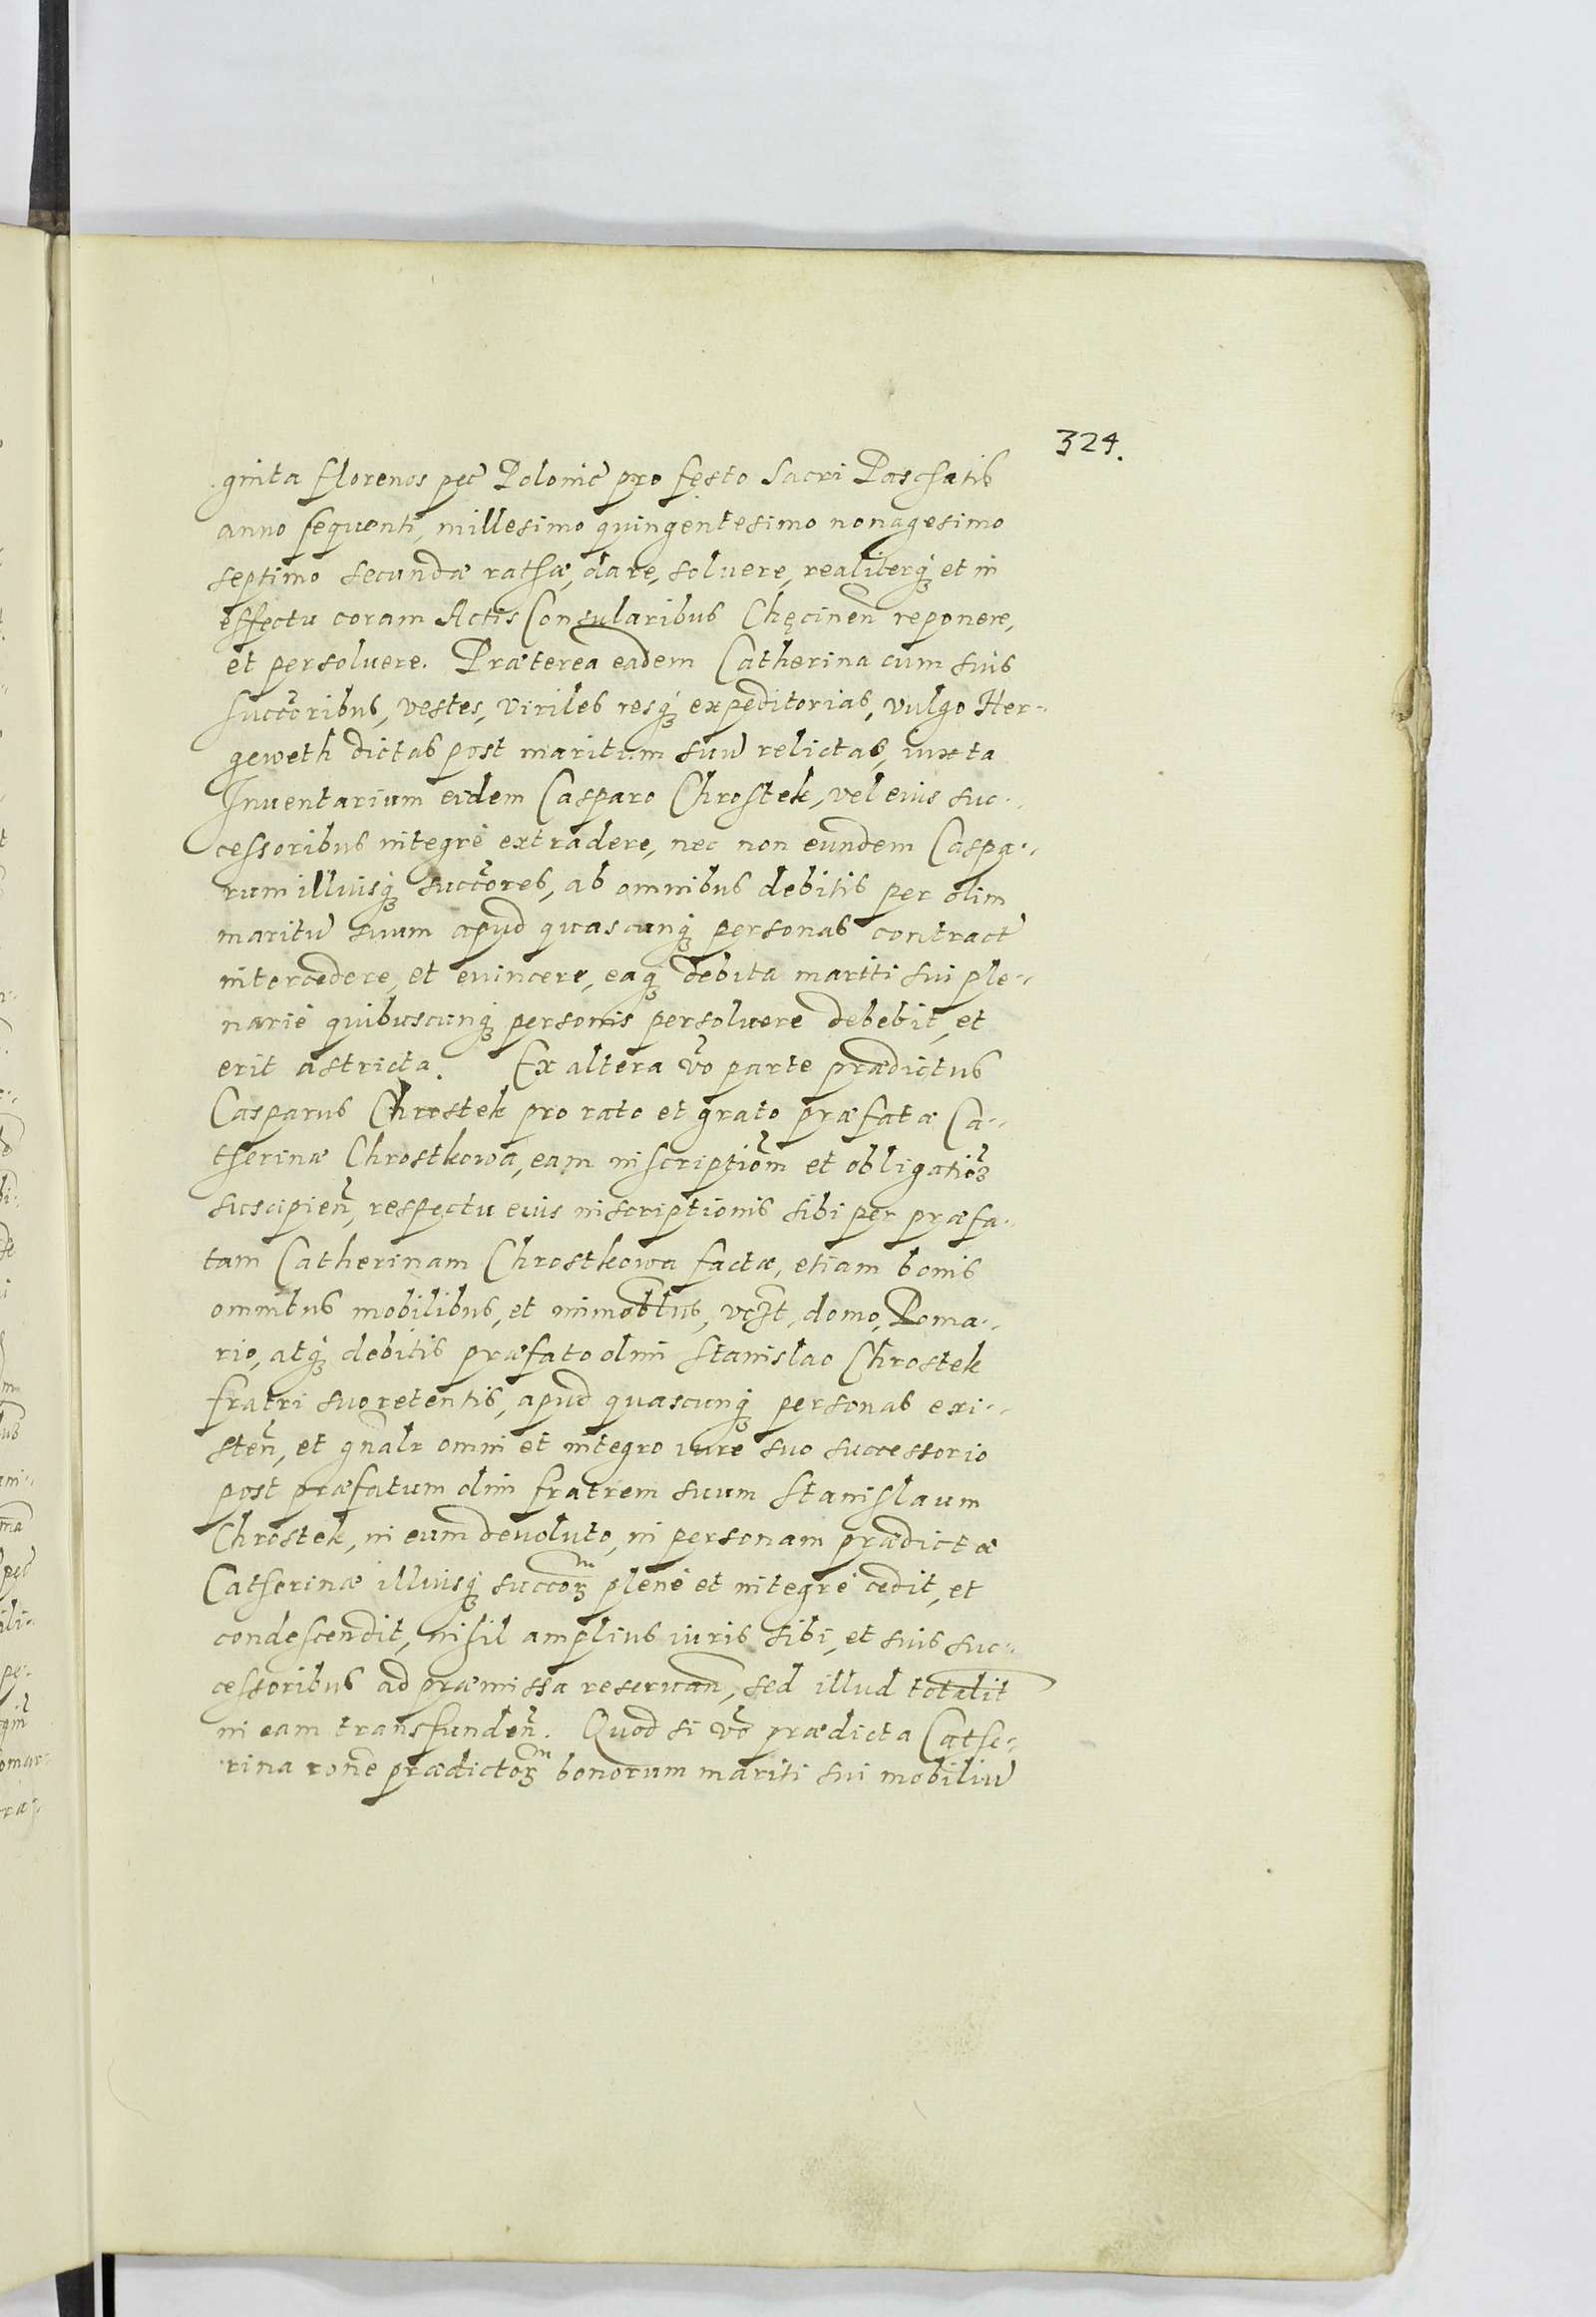 324.
ginta florenos pec̄ Polonic̄ pro festo Sacri Paschatis
anno sequenti, millesimo quingentesimo nonagesimo
septimo secundæ rathæ, dare, soluere, realiterq₃ et in
effectu coram Actis Consularibus Chęcinen̄ reponere,
et persoluere. Præterea eadem Catherina cum suis
succōribus, vestes, viriles resq₃ expeditorias, vulgo Her-
geweth dictas post maritum suū relictas, iuxta
Inuentarium eidem Casparo Chrostek, vel eius suc-
cessoribus integrè extradere, nec non eundem Caspa-
rum illiusq₃ succōres, ab omnibus debitis per olim
maritū suum apud quascunq₃ personas contract̄
intercedere, et euincere, eaq₃ debita mariti sui ple-
nariè quibuscunq₃ personis persoluere debebit, et
erit astricta. Ex altera vō parte prædictus
Casparus Chrostek pro rato et grato præfatæ Ca-
therinæ Chrostkowa, eam inscriptiōm et obligatiō₃
suscipien̄, respectu eius inscriptionis sibi per præfa-
tam Catherinam Chrostkowa factæ, etiam bonis
omnibus mobilibus, et immobl̄bus, vc₃t, domo, Poma-
rio, atq₃ debitis præfato olim Stanislao Chrostek
fratri suo retentis, apud quascunq₃ personas exi-
sten̄, et gn̄alr omni et integro iure suo successorio
post præfatum olim fratrem suum Stanislaum
Chrostek, in eum deuoluto, in personam prædictæ
Catherinæ illiusq₃ succoꝝm plenè et integrè cedit, et
condescendit, nihil amplius iuris sibi, et suis suc-
cessoribus ad præmissa reseruan̄, sed illud totalit̄
in eam transfunden̄. Quod si vō prædicta Cathe-
rina rōne prædictoꝝm bonorum mariti sui mobiliū